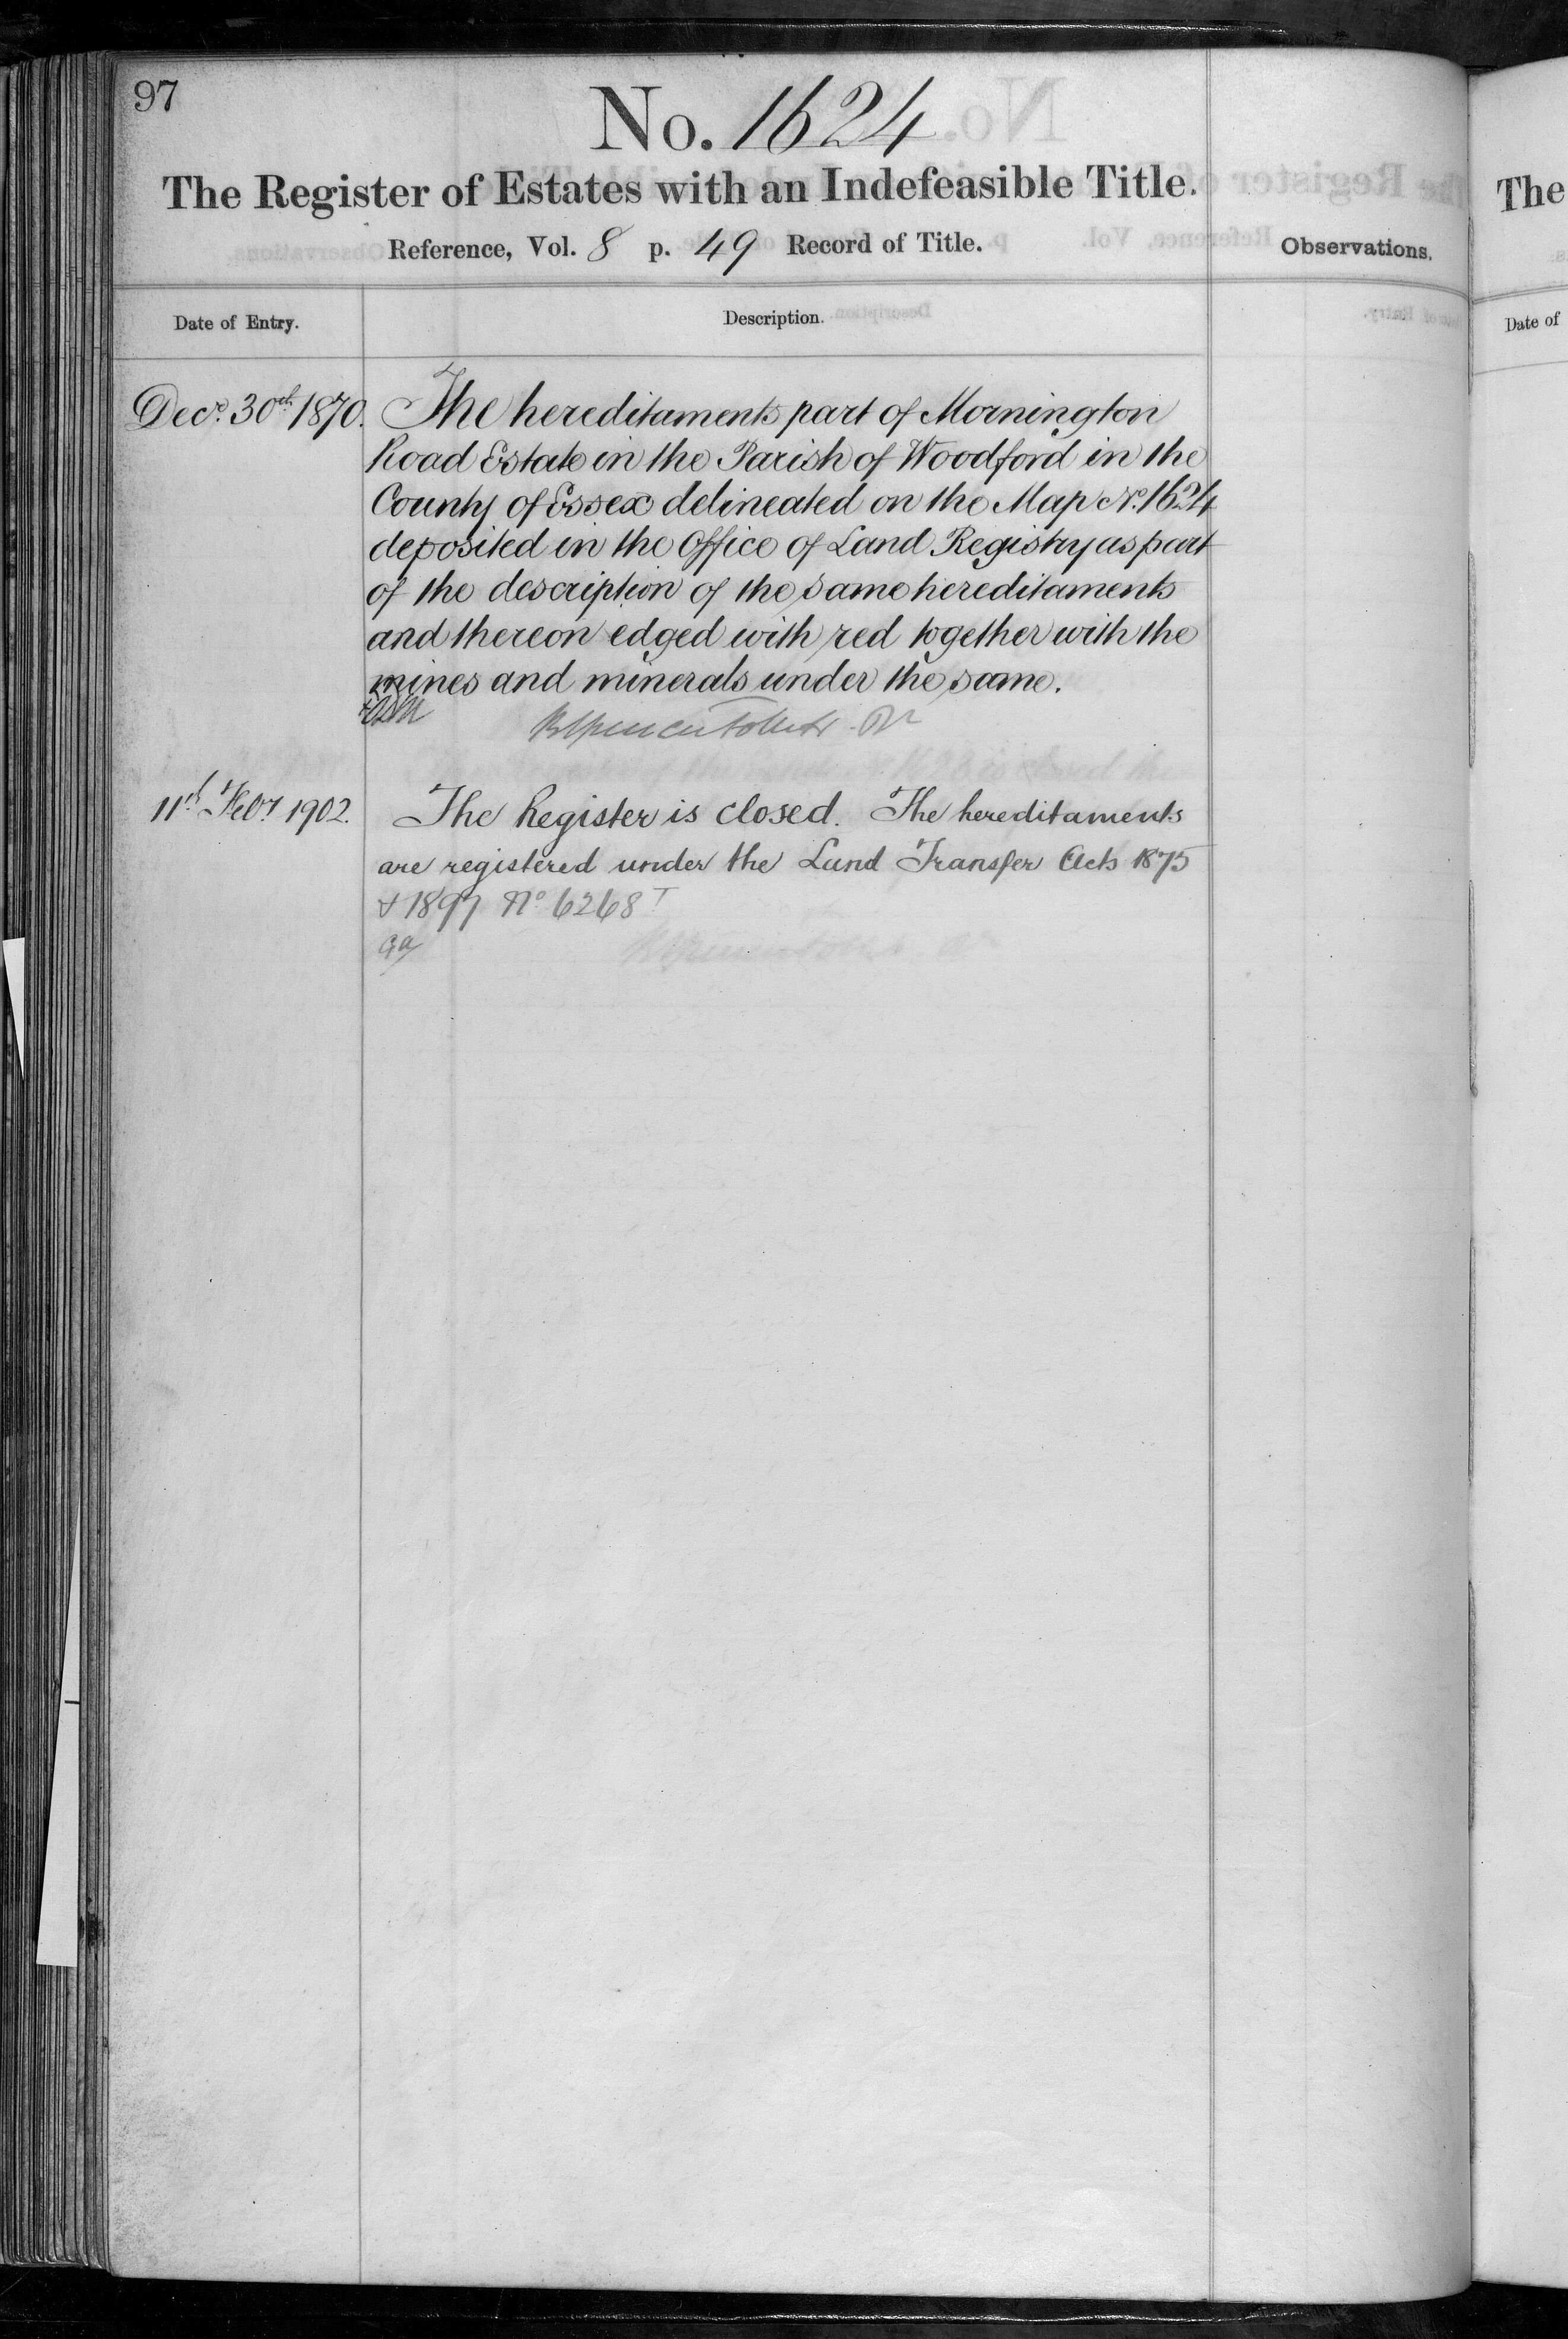 97
No. 1624
The Register of Estates with an Indefeasible Title.
Reference, Vol. 8 p. 49 Record of Title.
Observations.
Date of Entry.
Description.
Decr. 30th 1870.
The hereditaments part of Mornington
Road Estate in the Parish of Woodford in the
County of Essex delineated on the Map No. 1624
deposited in the Office of Land Registry as part
of the description of the same hereditaments
and thereon edged with red together with the
mines and minerals under the same.
11th Feby 1902.
The Register is closed. The hereditaments
are registered under the Land Transfer Acts 1875
& 1897 No 6268 T
The
Date of